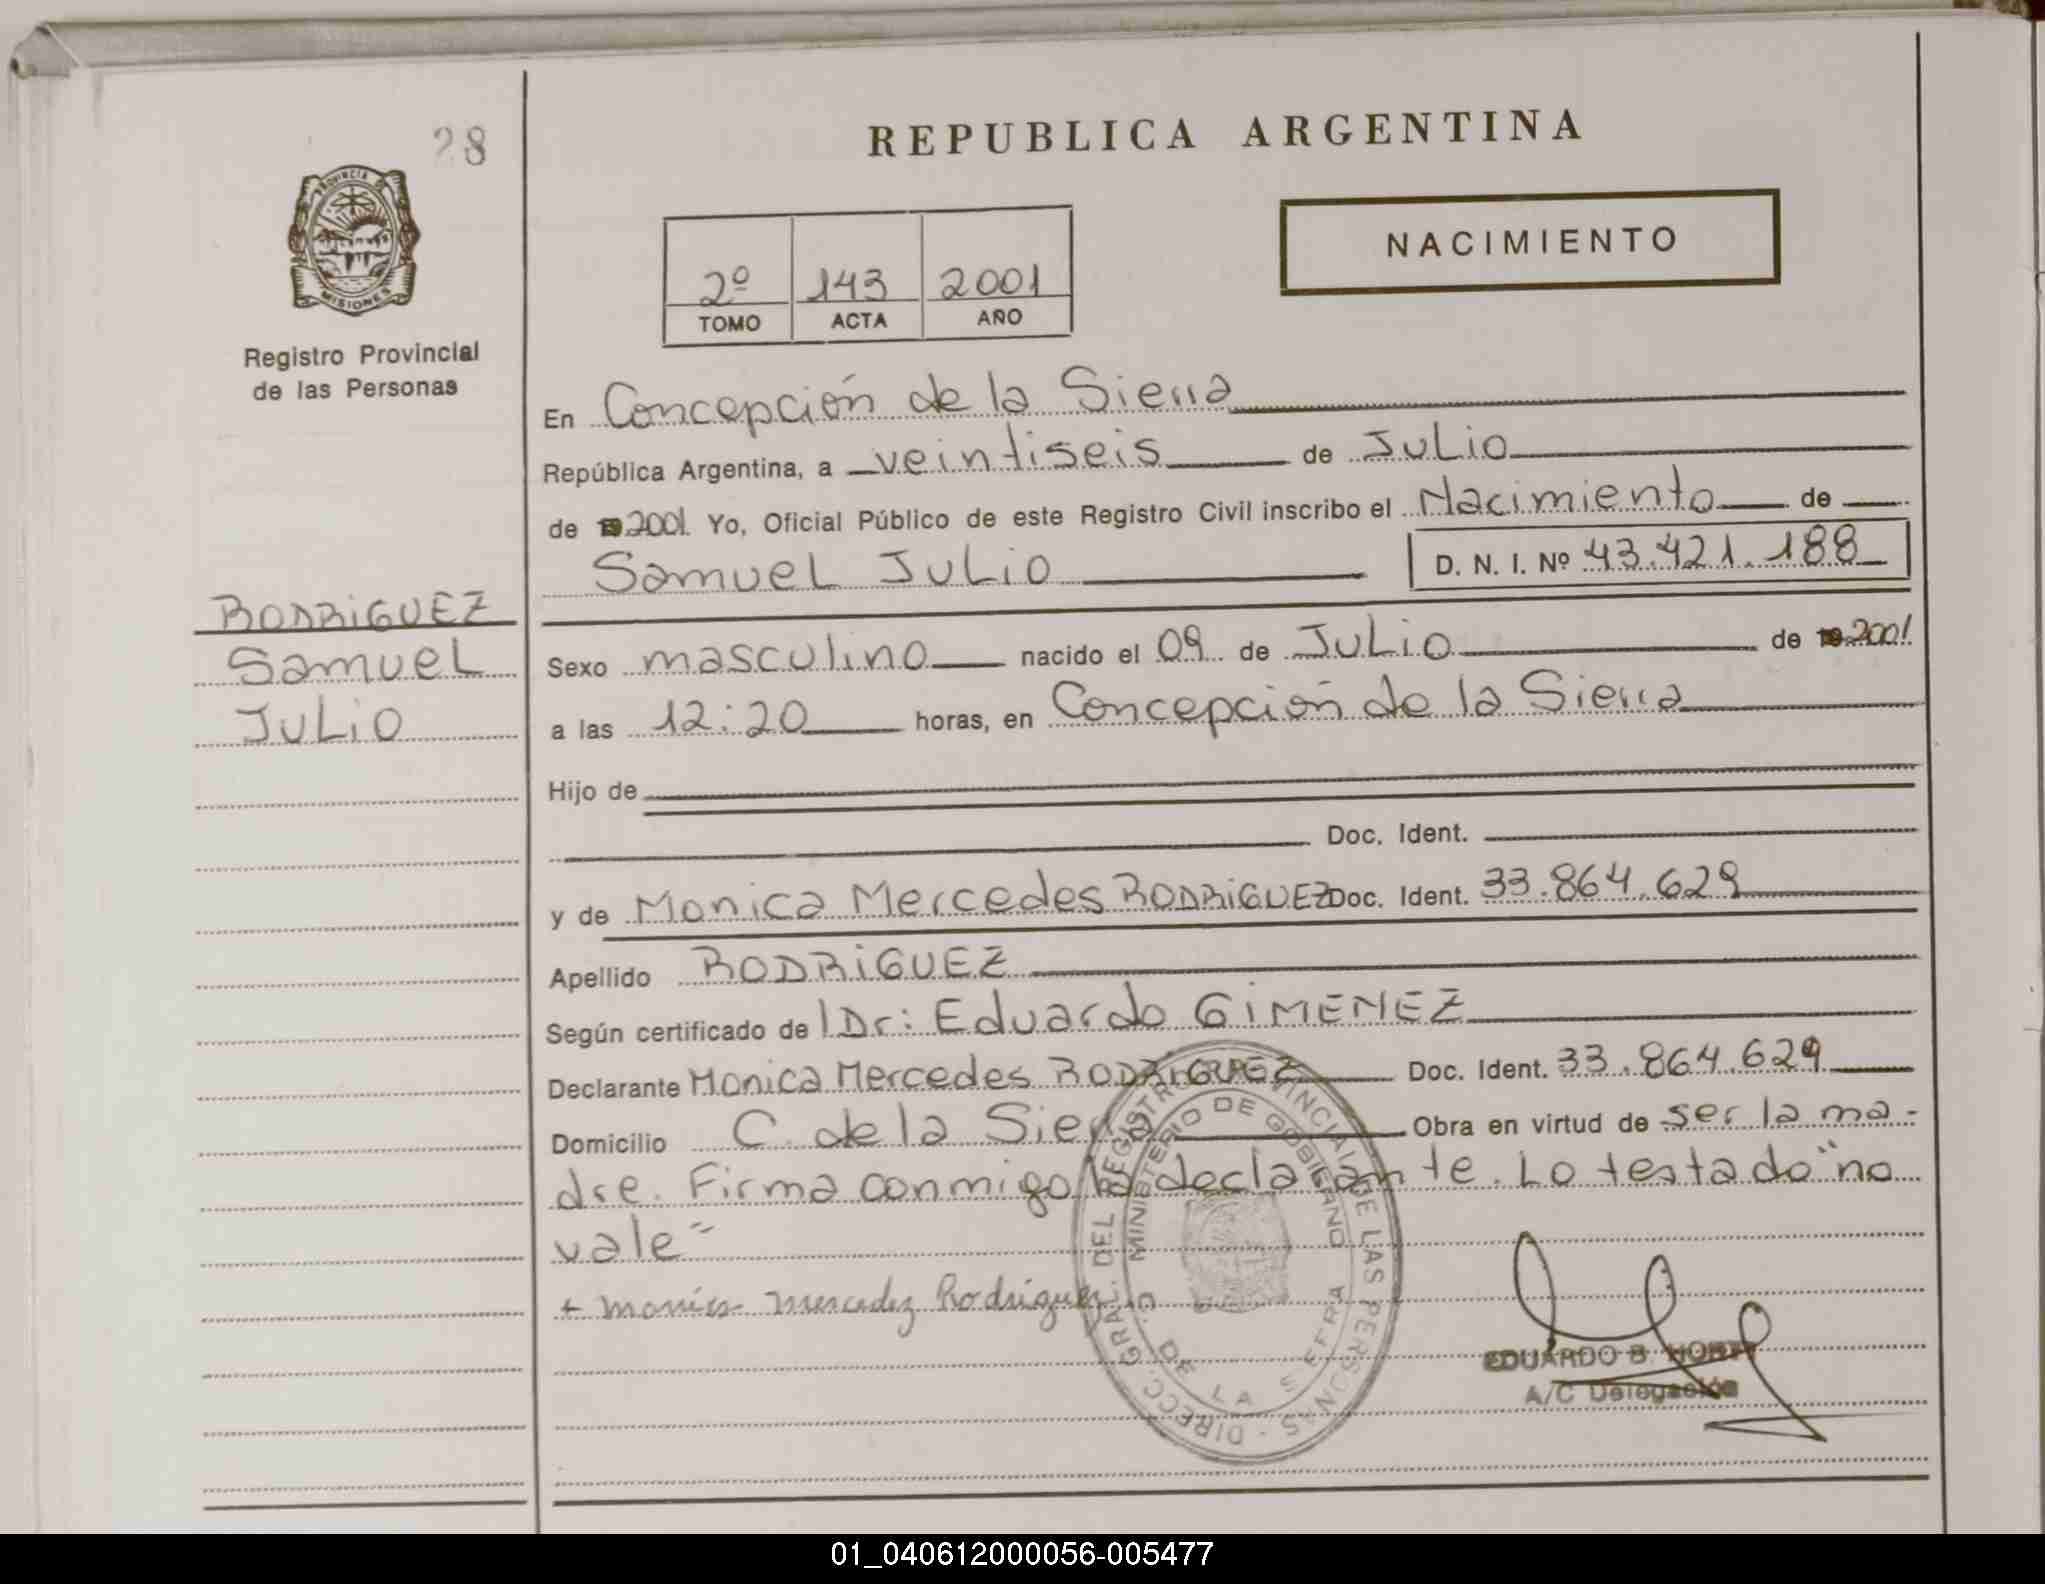 28
REPUBLICA ARGENTINA
PROVINCIA DE
MISIONES
Registro Provincial
de las Personas
NACIMIENTO
2º 143 2001
TOMO ACTA AÑO
En Concepción de la Sierra
República Argentina, a veintiseis de Julio
de 2001. Yo, Oficial Público de este Registro Civil inscribo el Nacimiento de
Samuel Julio D. N. I. Nº 43.421.188
RODRIGUEZ
Samuel
Julio
Sexo masculino nacido el 09 de Julio de 2001
a las 12:20 horas, en Concepción de la Sierra
Hijo de
Doc. Ident.
y de Monica Mercedes RODRIGUEZ Doc. Ident. 33.864.629
Apellido RODRIGUEZ
Según certificado de Dr: Eduardo GIMENEZ
Declarante Monica Mercedes RODRIGUEZ Doc. Ident. 33.864.629
Domicilio C. de la Sierra Obra en virtud de ser la ma-
dre. Firma conmigo la declarante. Lo testado "no
vale"
+ Monica mercedez Rodriguez
DIRECC. GRAL. DEL REGISTRO PROVINCIAL DE LAS PERSONAS
MINISTERIO DE GOBIERNO
C. DE LA SIERRA
EDUARDO B.
A/C Delegación
01_040612000056-005477